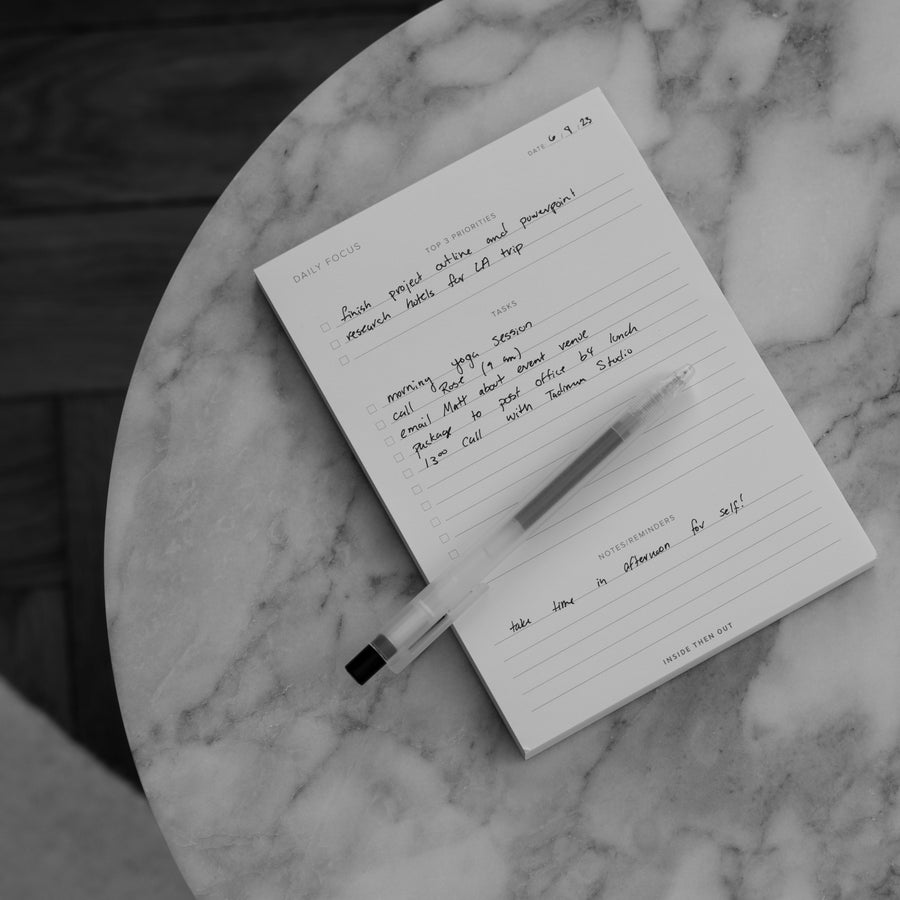 DATE 6 / 9 / 23
DAILY FOCUS
TOP 3 PRIORITIES
finish project outline and powerpoint
research hotels for LA trip
TASKS
morning yoga session
call Rose (9 am)
email Matt about event venue
package to post office b4 lunch
13:00 call with Tadman Studio
NOTES/REMINDERS
take time in afternoon for self!
INSIDE THEN OUT